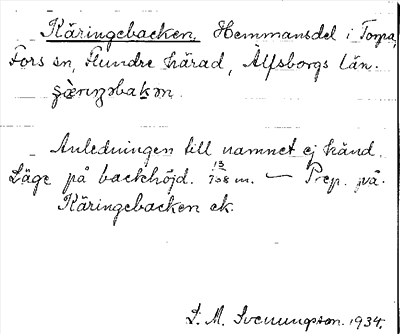 Käringebacken. Hemmansdel i Torpa,
Fors sn, Flundre härad, Älfsborgs län.
Anledningen till namnet ej känd.
Läge på backhöjd. 13/708 m. — Prep. på.
Käringebacken ek.
D. M. Svenungsson. 1934.